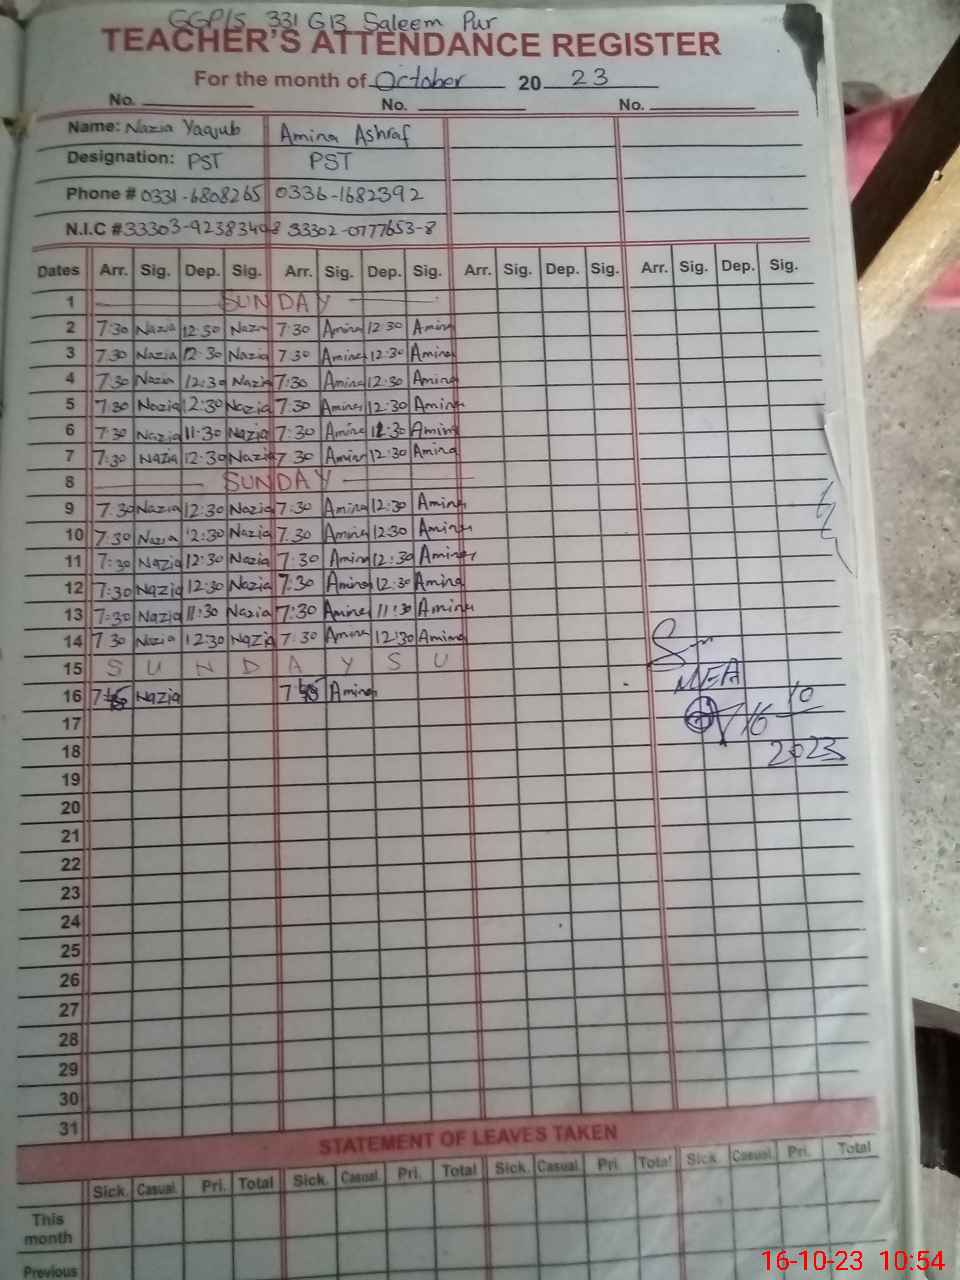 GGP/S 331 GB Saleem Pur
TEACHER'S ATTENDANCE REGISTER
For the month of October 20 23
No. No. No.
Name: Nazia Yaqub Amina Ashraf
Designation: PST PST
Phone # 0331-6808265 0336-1682392
N.I.C # 33303-9238340-8 33302-0777653-8
Dates Arr. Sig. Dep. Sig. Arr. Sig. Dep. Sig. Arr. Sig. Dep. Sig. Arr. Sig. Dep. Sig.
1 SUNDAY
2 7:30 Nazia 12:30 Nazia 7:30 Amina 12:30 Amina
3 7:30 Nazia 12:30 Nazia 7:30 Amina 12:30 Amina
4 7:30 Nazia 12:30 Nazia 7:30 Amina 12:30 Amina
5 7:30 Nazia 12:30 Nazia 7:30 Amina 12:30 Amina
6 7:30 Nazia 11:30 Nazia 7:30 Amina Amina
7 7:30 Nazia 12:30 Nazia 7:30 Amina 12:30 Amina
8 SUNDAY
9 7:30 Nazia 12:30 Nazia 7:30 Amina 12:30 Amina
10 7:30 Nazia 12:30 Nazia 7:30 Amina 12:30 Amina
11 7:30 Nazia 12:30 Nazia 7:30 Amina 12:30 Amina
12 7:30 Nazia 12:30 Nazia 7:30 Amina 12:30 Amina
13 7:30 Nazia 11:30 Nazia 7:30 Amina 11:30 Amina
14 7:30 Nazia 12:30 Nazia 7:30 Amina 12:30 Amina
15 S U N D A Y S U
16 Nazia Amina
MEA
16 10
2023
17
18
19
20
21
22
23
24
25
26
27
28
29
30
31
STATEMENT OF LEAVES TAKEN
Sick. Casual. Pri. Total Sick. Casual. Pri. Total Sick. Casual. Pri. Total Sick. Casual. Pri. Total
This
month
Previous
16-10-23 10:54